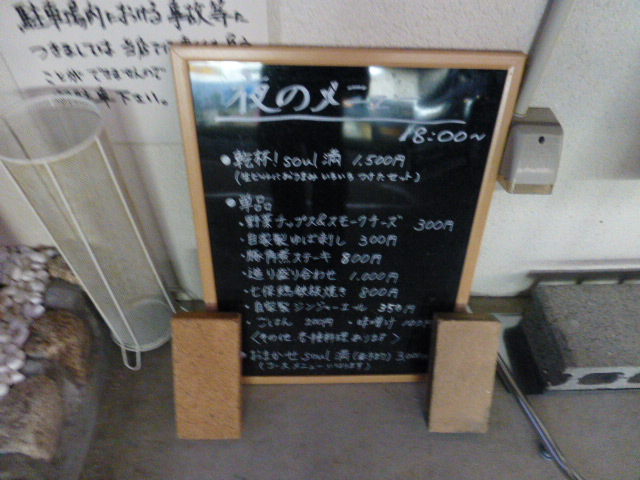 駐車場内における事故等に
つきましては 当店では
ことができませんので
下さい。
夜のメニュー
18:00〜
●乾杯! soul 満 1.500円
(生ビールにおつまみ いろいろ つけたセット)
●単品
・野菜チップス&スモークチーズ 300円
・自家製ゆば刺し 300円
・豚角煮ステーキ 800円
・造り盛り合わせ 1.000円
・七保鶏鉄板焼き 800円
・自家製ジンジャーエール 350円
・ごはん 200円 ・味噌汁
<その他 各種料理あります>
●おまかせ soul 満
(コースメニューになります)